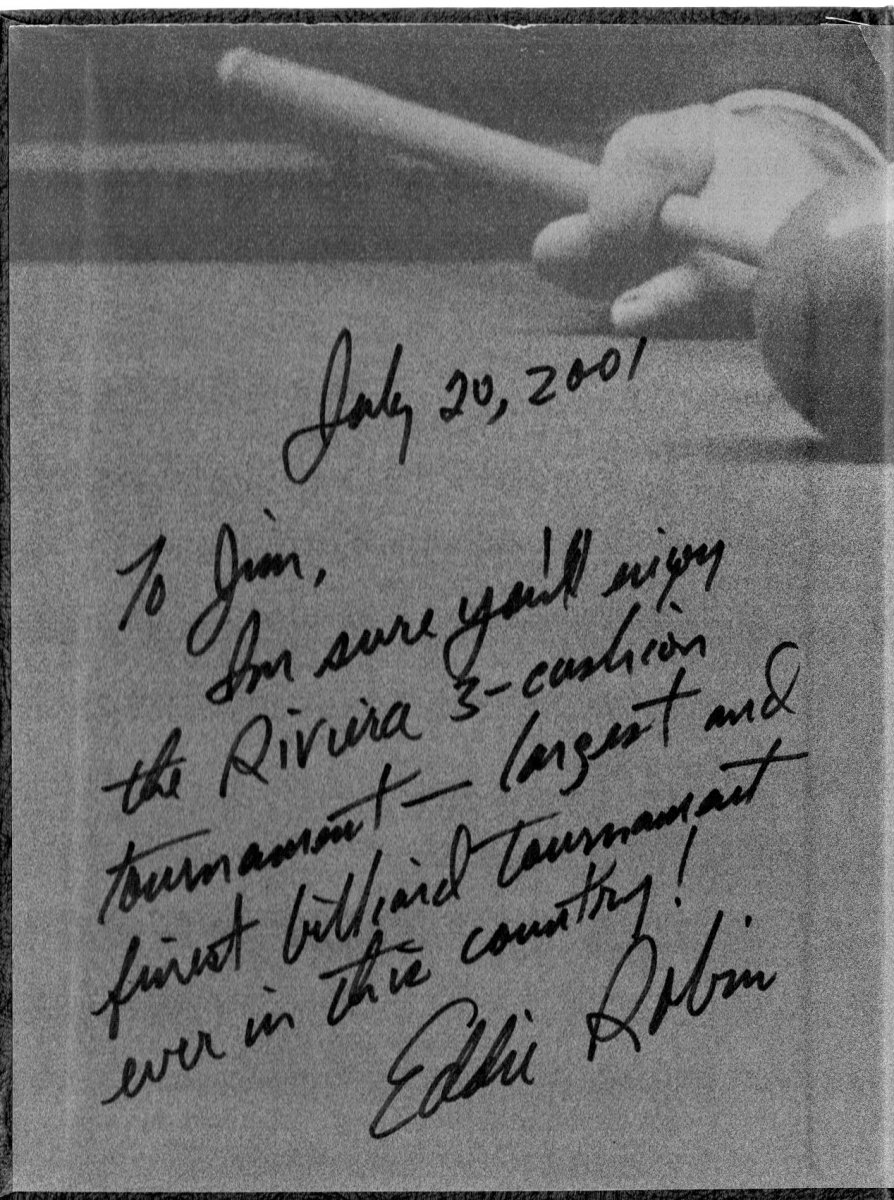 July 20, 2001
To Jim,
I'm sure you'll enjoy
the Riviera 3-cushion
tournament — largest and
finest billiard tournament
ever in this country!
Eddie Robin